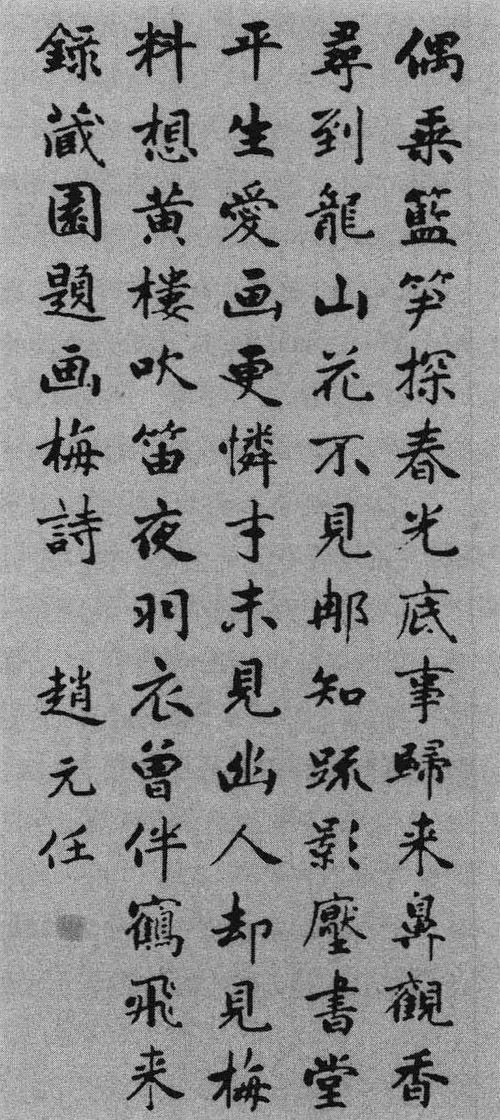 偶乗籃笋探春光底事歸来鼻觀香
尋到龍山花不見邮知踈影壓書堂
平生愛画更憐才未見幽人却見梅
料想黄樓吹笛夜羽衣曾伴鶴飛来
錄藏園題画梅詩 趙元任